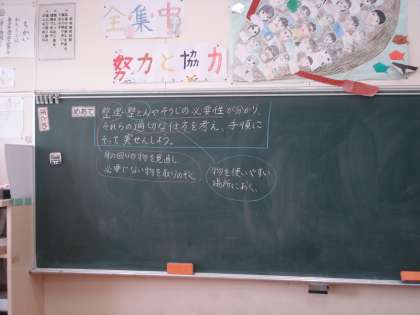 全集中
努力と協力
めあて
整理・整とんやそうじの必要性が分かり、
それらの適切な仕方を考え、手順に
そって実せんしよう。
身の回りの物を見直し
必要じない物を取りのぞく
物を使いやすい
場所におく。